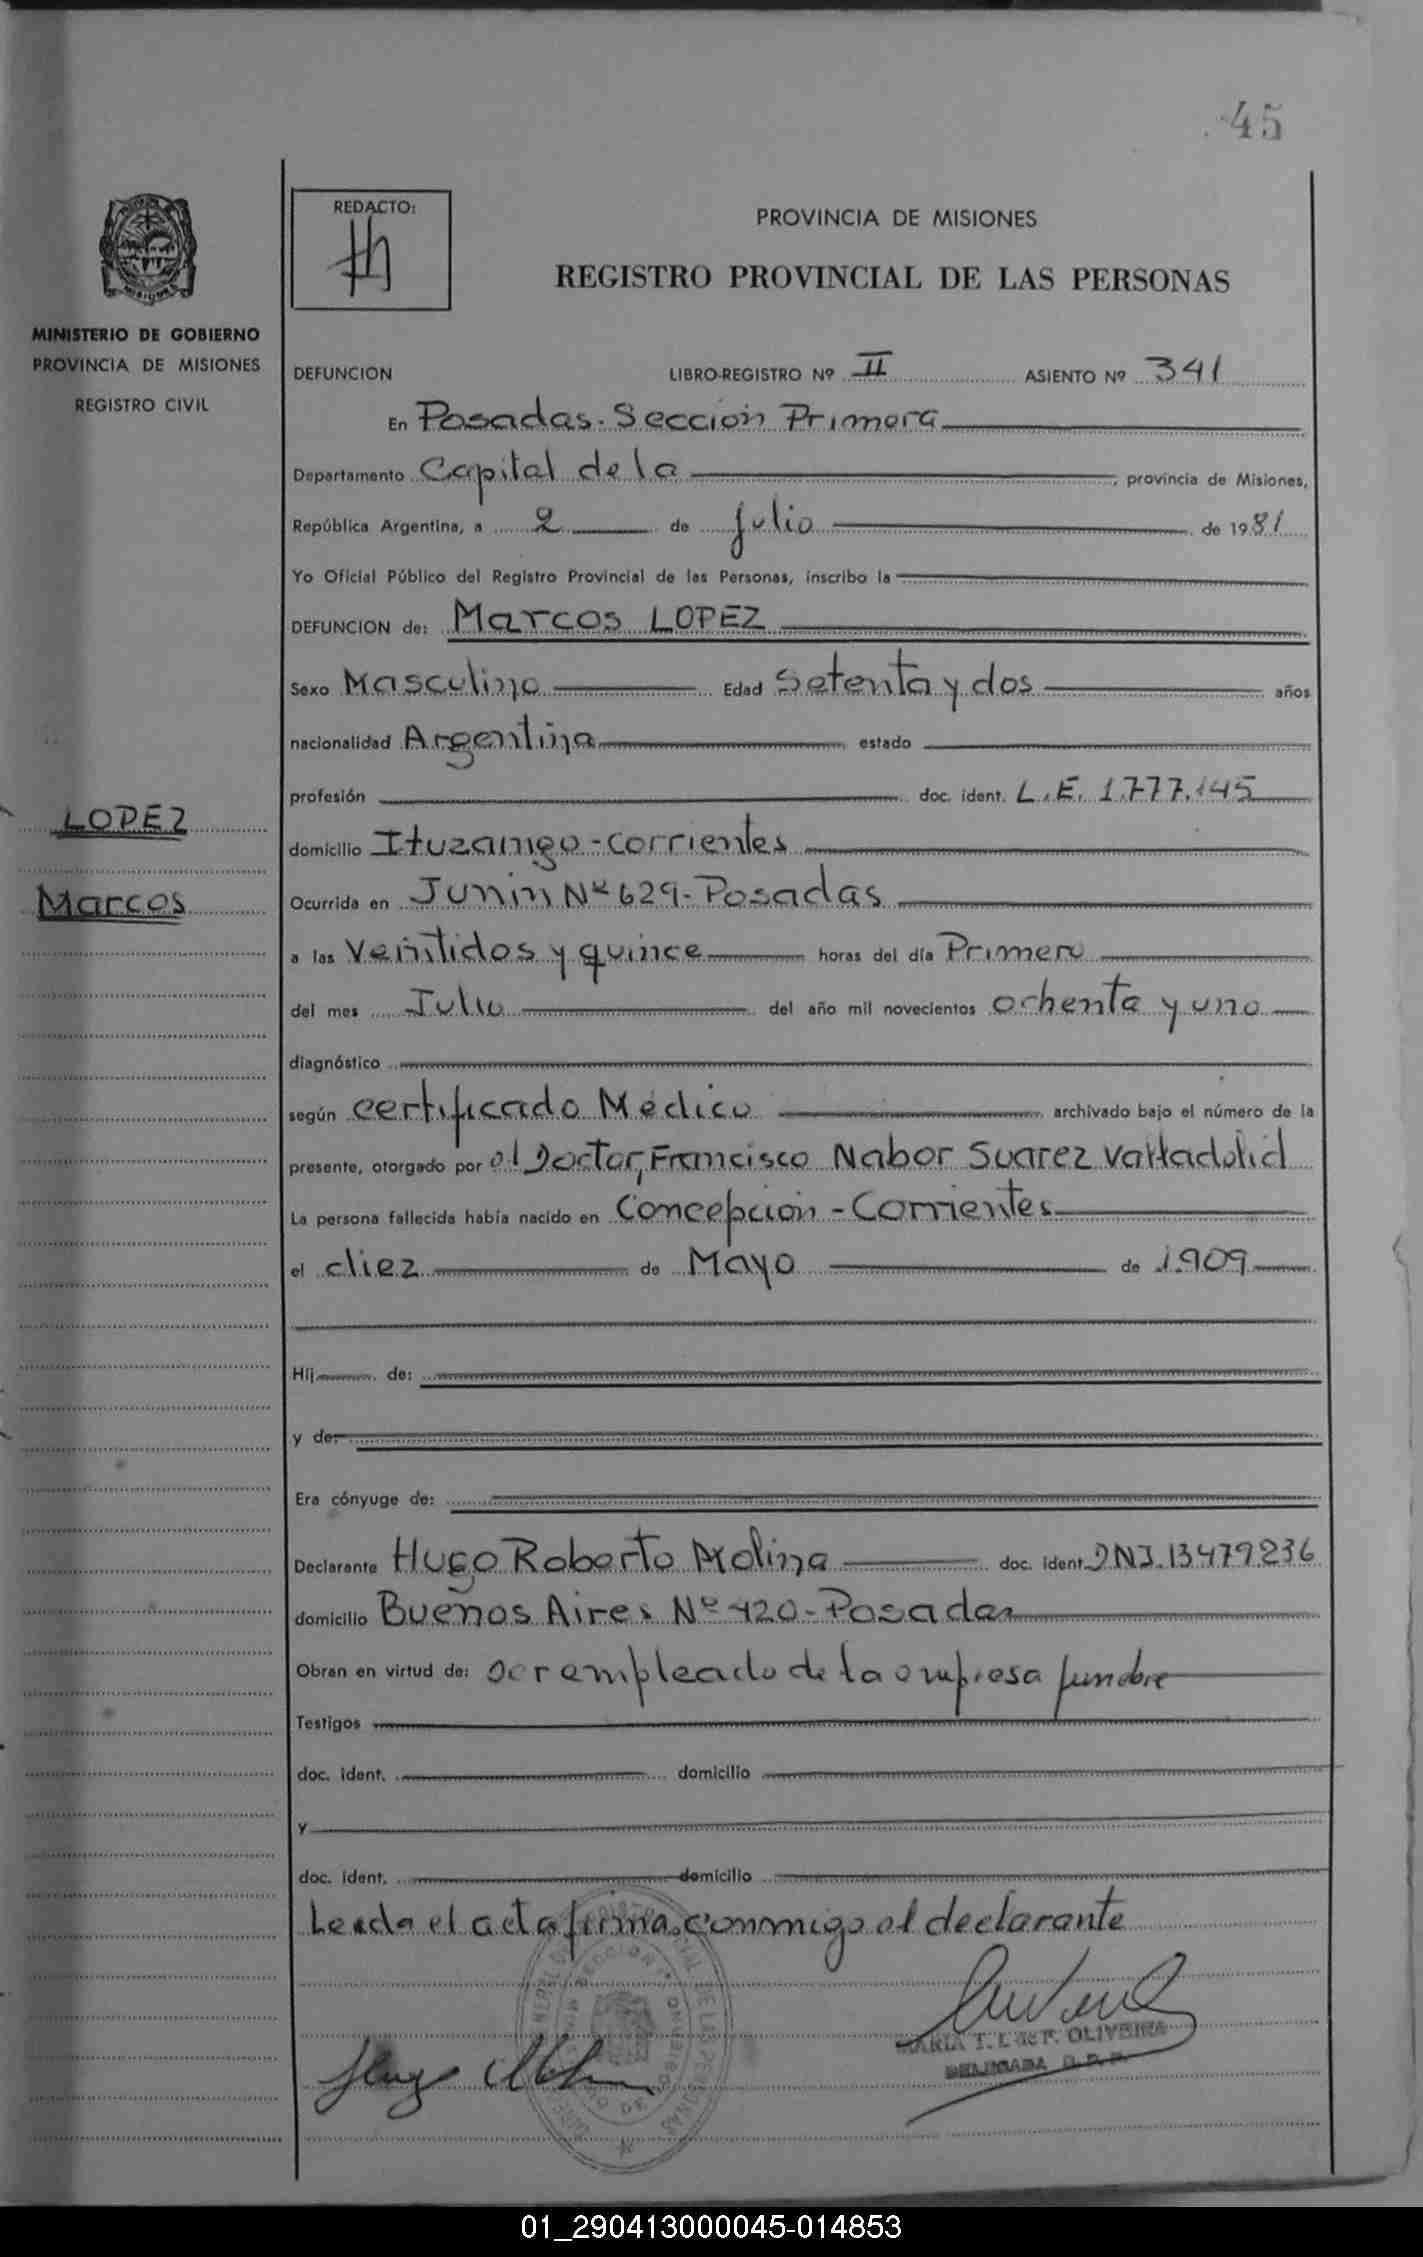 45
REDACTO:
PROVINCIA DE MISIONES
REGISTRO PROVINCIAL DE LAS PERSONAS
MISIONES
MINISTERIO DE GOBIERNO
PROVINCIA DE MISIONES
REGISTRO CIVIL
DEFUNCION LIBRO-REGISTRO Nº II ASIENTO Nº 341
En Posadas. Sección Primera
Departamento Capital de la, provincia de Misiones,
República Argentina, a 2 de julio de 1981
Yo Oficial Público del Registro Provincial de las Personas, inscribo la
DEFUNCION de: Marcos LOPEZ
Sexo Masculino Edad Setenta y dos años
nacionalidad Argentina estado
profesión doc. ident. L.E. 1.777.145
LOPEZ
domicilio Ituzaingo - corrientes
Marcos
Ocurrida en Junin Nº 629 - Posadas
a las Veintidos y quince horas del día Primero
del mes Julio del año mil novecientos ochenta y uno
diagnóstico
según certificado Médico archivado bajo el número de la
presente, otorgado por el Doctor, Francisco Nabor Suarez Valladolid
La persona fallecida había nacido en Concepción - Corrientes
el diez de Mayo de 1.909
Hij de:
y de:
Era cónyuge de:
Declarante Hugo Roberto Molina doc. ident. DNI. 13479236
domicilio Buenos Aires Nº 420 - Posadas
Obran en virtud de: ser empleado de la empresa funebre
Testigos
doc. ident. domicilio
y
doc. ident. domicilio
Leida el acta firma conmigo el declarante
MARIA T. L. de F. OLIVEIRA
DELEGADA R.P.P.
Hugo Molina
01_290413000045-014853